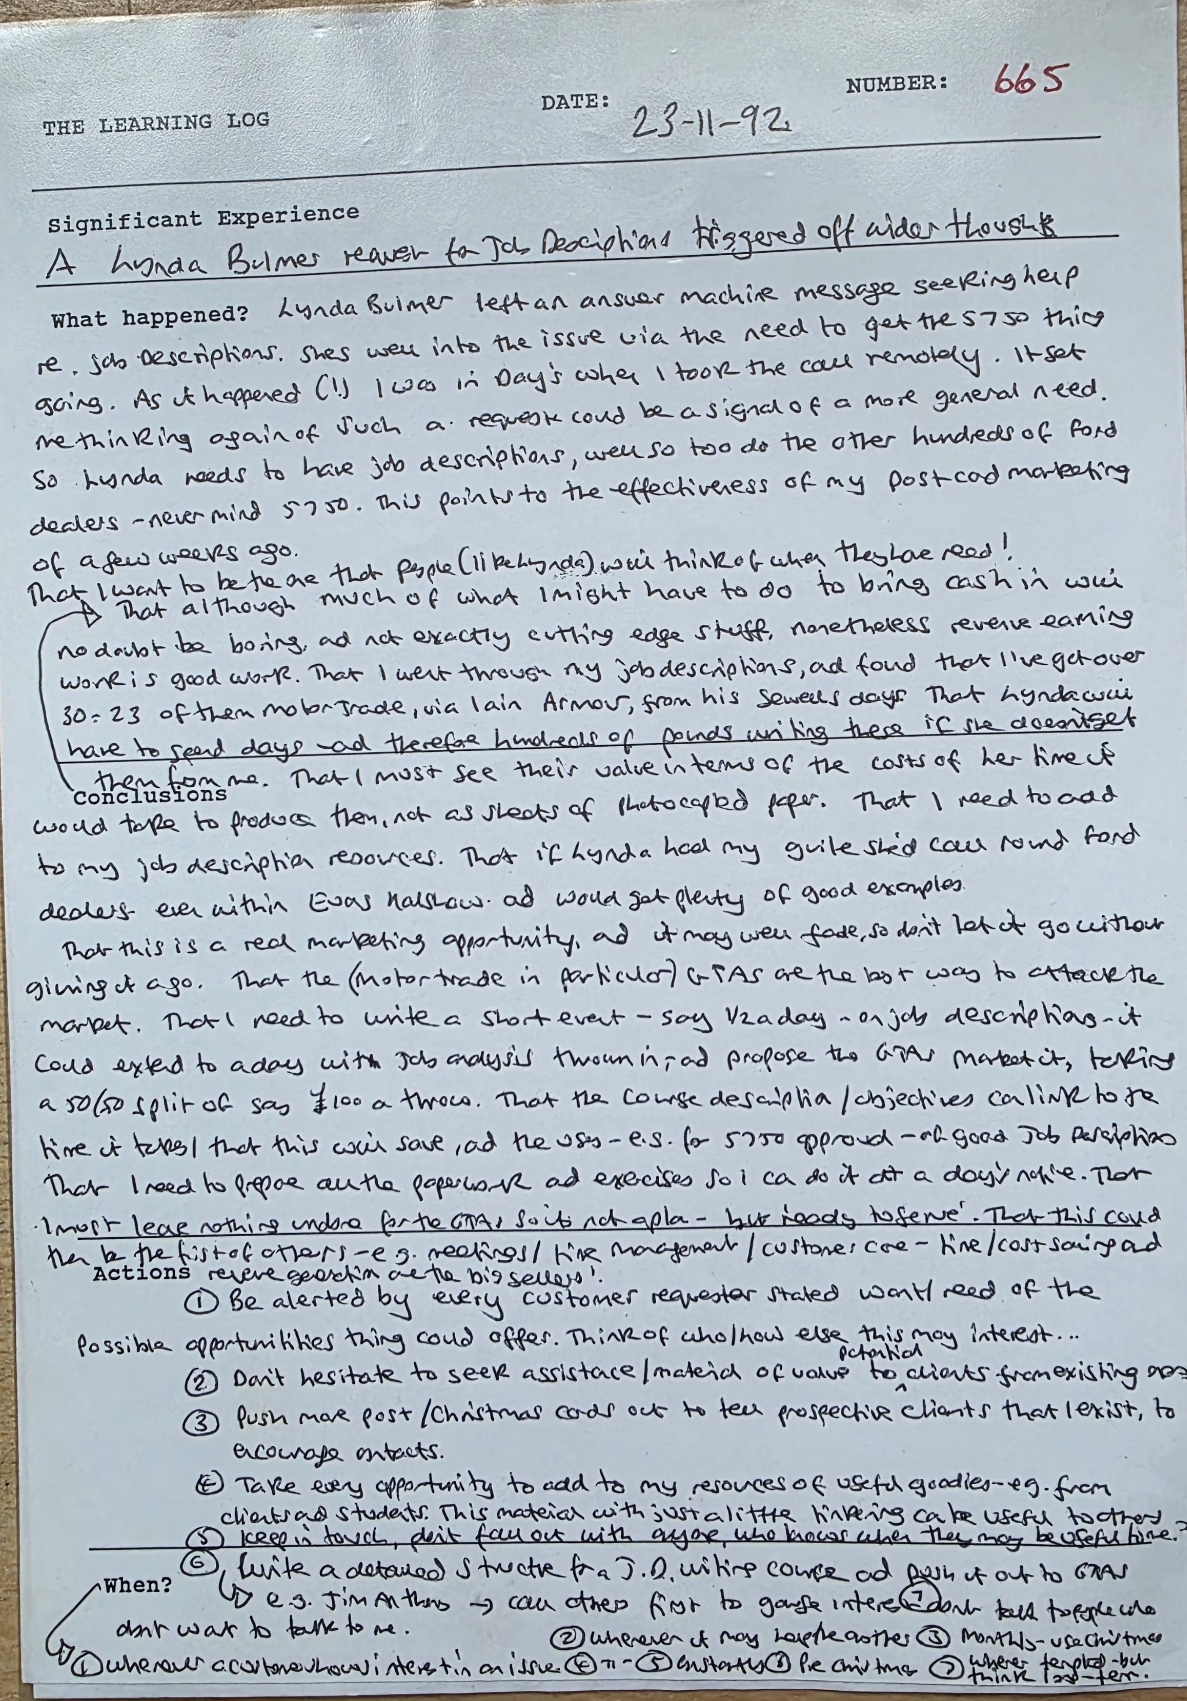 THE LEARNING LOG
DATE: 23-11-92
NUMBER: 665
Significant Experience
A Lynda Bulmer request for Job Descriptions triggered off wider thoughts
What happened? Lynda Bulmer left an answer machine message seeking help
re. job descriptions. Shes well into the issue via the need to get the 5750 thing
going. As it happened (!) I was in Day's when I took the call remotely. It set
me thinking again of such a request could be a signal of a more general need.
So Lynda needs to have job descriptions, well so too do the other hundreds of Ford
dealers - never mind 5750. This points to the effectiveness of my post-card marketing
of a few weeks ago.
That I want to be the one that people (like Lynda) will think of when they have need!
That although much of what I might have to do to bring cash in will
no doubt be boring, and not exactly cutting edge stuff, nonetheless revenue earning
work is good work. That I went through my job descriptions, and found that I've got over
30 = 23 of them motor trade, via Iain Armour, from his Sewells days. That Lynda will
have to spend days - and therefore hundreds of pounds writing these if she doesn't get
them from me. That I must see their value in terms of the costs of her time it
Conclusions
would take to produce them, not as sheets of photocopied paper. That I need to add
to my job description resources. That if Lynda had my guile she'd call round Ford
dealers even within Evans Halshaw and would get plenty of good examples.
That this is a real marketing opportunity, and it may well fade, so don't let it go without
giving it a go. That the (motor trade in particular) GTAs are the best way to attack the
market. That I need to write a short event - say 1/2 a day - on job descriptions - it
could extend to a day with job analysis thrown in, and propose the GTAs market it, taking
a 50/50 split of say £100 a throw. That the course description/objectives can link to the
time it takes/ that this will save, and the uses - e.g. for 5750 approval - of good Job Descriptions
That I need to prepare all the paperwork and exercises so I can do it at a day's notice. That
I must leave nothing undone for the GTAs so its not a plan - but 'ready to serve'. That this could
then be the first of others - e.g. meetings/ time management / customer care - time/cost saving and
Actions revenue generation are the big sellers!
① Be alerted by every customer request or stated want/need of the
possible opportunities thing could offer. Think of who/how else this may interest...
② Don't hesitate to seek assistance/material of value to potential clients from existing ones
③ Push more post/Christmas cards out to tell prospective clients that I exist, to
encourage contacts.
④ Take every opportunity to add to my resources of useful goodies - eg. from
clients and students. This material with just a little tinkering can be useful to others
⑤ Keep in touch, don't fall out with anyone, who knows when they may be useful time?
⑥ Write a detailed structure for a J.D. writing course and push it out to GTAs
When?
e.g. Jim Anthony → call others first to gauge interest ⑦ don't talk to people who
don't want to talk to me.
② whenever it may help the other ③ Monthly - use Christmas
① whenever a customer shows interest in an issue ④ " - ⑤ Constantly ⑥ Pre Christmas ⑦ where tempted - but
think long-term.